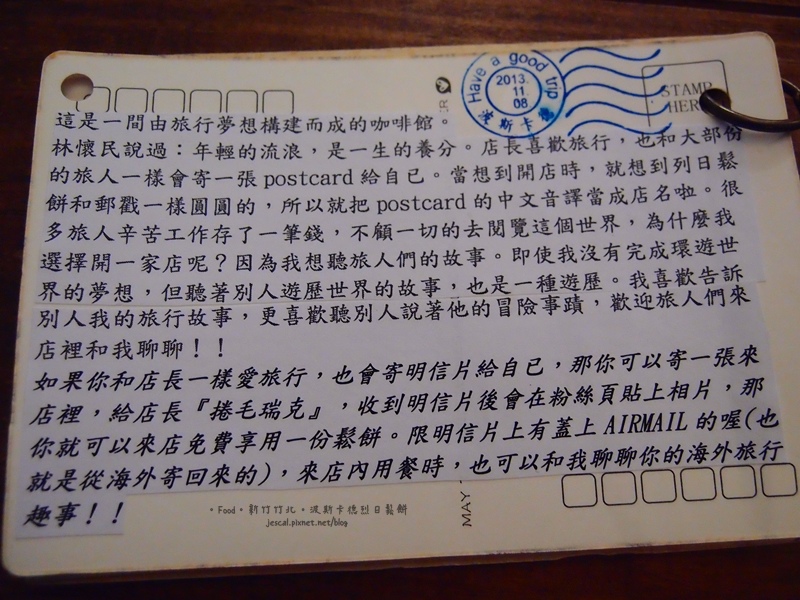 Have a good trip
2013.
11.
08
波斯卡德
STAMP
HERE
這是一間由旅行夢想構建而成的咖啡館。
林懷民說過：年輕的流浪，是一生的養分。店長喜歡旅行，也和大部份
的旅人一樣會寄一張 postcard 給自己。當想到開店時，就想到列日鬆
餅和郵戳一樣圓圓的，所以就把 postcard 的中文音譯當成店名啦。很
多旅人辛苦工作存了一筆錢，不顧一切的去閱覽這個世界，為什麼我
選擇開一家店呢？因為我想聽旅人們的故事。即使我沒有完成環遊世
界的夢想，但聽著別人遊歷世界的故事，也是一種遊歷。我喜歡告訴
別人我的旅行故事，更喜歡聽別人說著他的冒險事蹟，歡迎旅人們來
店裡和我聊聊！！
如果你和店長一樣愛旅行，也會寄明信片給自己，那你可以寄一張來
店裡，給店長『捲毛瑞克』，收到明信片後會在粉絲頁貼上相片，那
你就可以來店免費享用一份鬆餅。限明信片上有蓋上 AIRMAIL 的喔(也
就是從海外寄回來的)，來店內用餐時，也可以和我聊聊你的海外旅行
趣事！！
。Food。新竹竹北。波斯卡德烈日鬆餅
jescal.pixnet.net/blog
MAY